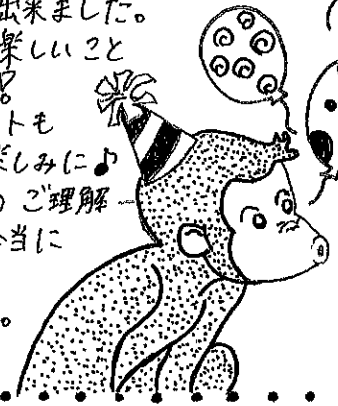 出来ました。
楽しいこと
トも
楽しみに♪
ご理解
本当に
。